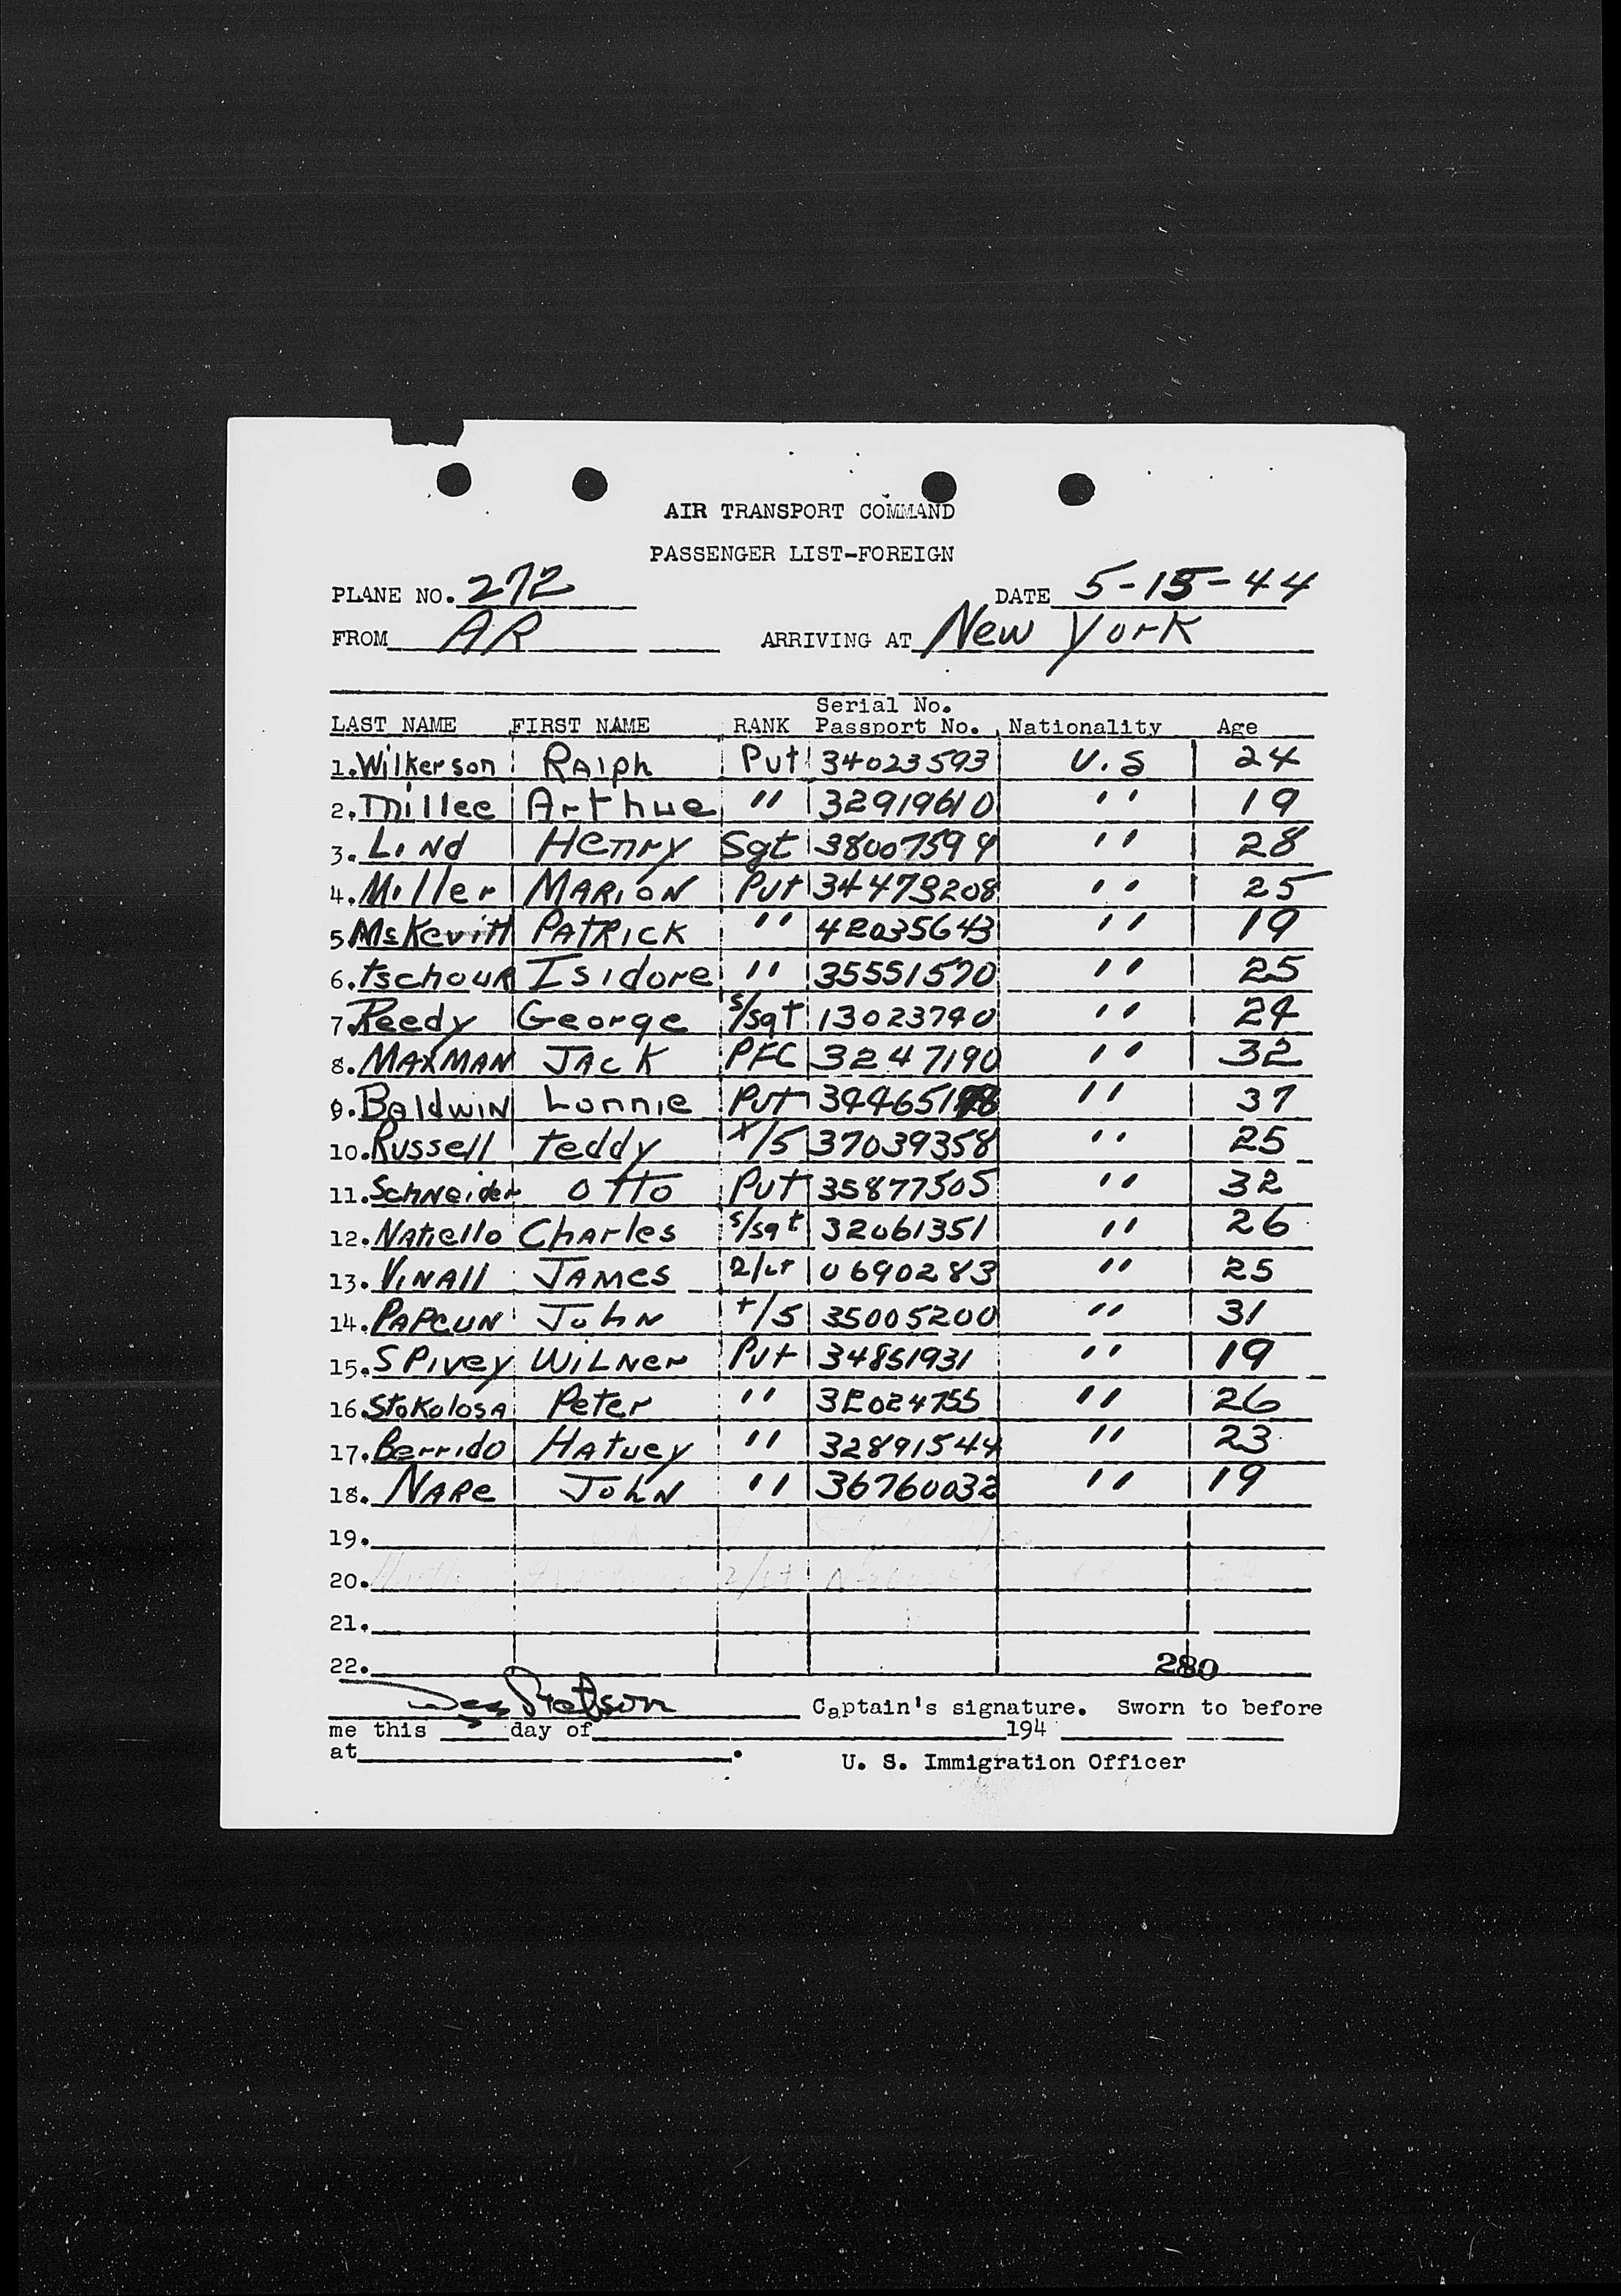 AIR TRANSPORT COMMAND
PASSENGER LIST-FOREIGN
PLANE NO. 272 DATE 5-15-44
FROM AR ARRIVING AT New York
Serial No.
LAST NAME FIRST NAME RANK Passport No. Nationality Age
1. Wilkerson Ralph Pvt 34023593 U.S 24
2. Miller Arthur " 32919610 " 19
3. Lind Henry Sgt 38007594 " 28
4. Miller MARION Pvt 34479208 " 25
5 McKevitt PATRICK " 42035643 " 19
6. tschour Isidore " 35551570 " 25
7. Reedy George S/sgt 13023790 " 24
8. MAXMAN JACK PFC 3247190 " 32
9. BaldwiN Lonnie Pvt " 37
10. Russell teddy T/5 37039358 " 25
11. SchNeider OTTO Pvt 35877505 " 32
12. NATiello ChArles S/sgt 32061351 " 26
13. ViNAll JAMes 2/Lt 0690283 " 25
14. PAPCUN JohN T/5 35005200 " 31
15. SPivey WiLNer Pvt 34851931 " 19
16. StoKolosA Peter " 32024755 " 26
17. Berrido HAtuey " 32891544 " 23
18. NARe JohN " 36760032 " 19
19.
20.
21.
22. 280
Captain's signature. Sworn to before
me this day of 194
at .
U. S. Immigration Officer